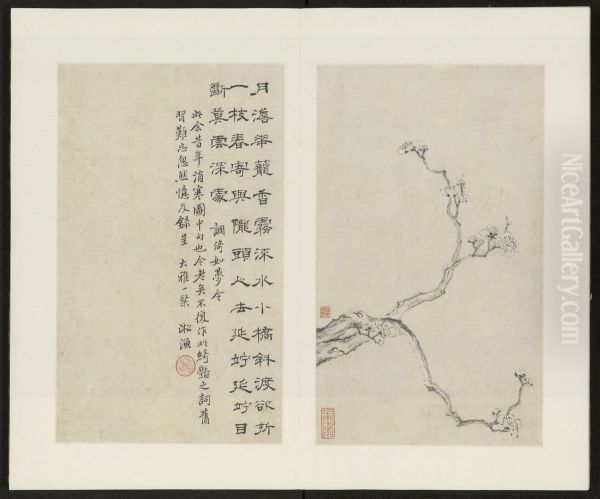 月澹華籠香霧深水小橋斜渡欲折
一枝春寄與隴頭人去延竚延竚目
斷莫雲深處
調倚如夢令
此余昔年消寒圖中句也今老矣不復作此綺豔之詞舊
習難忘忽然憶及錄呈 大雅一粲 淞漁
NiceArtGallery.com